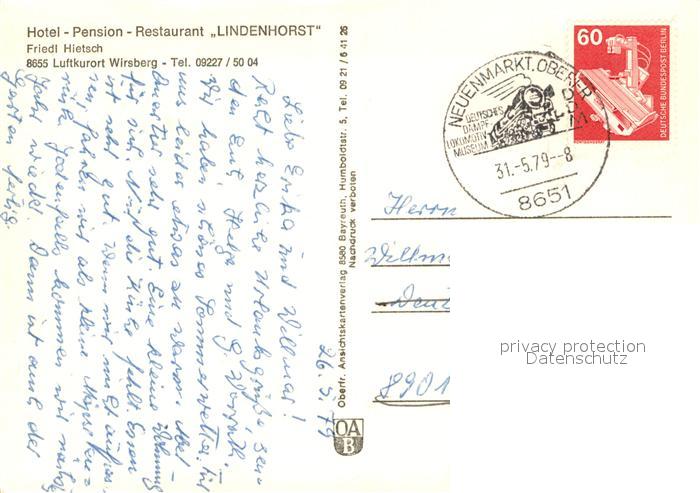 Hotel - Pension - Restaurant „LINDENHORST"
Friedl Hietsch
8655 Luftkurort Wirsberg - Tel. 09227 / 50 04
26.5.79
Liebe Erika und Willmar!
Recht herzliche Urlaubsgrüße sen-
den Euch Helga und G.
Wir haben schönes Sommerwetter. Für
uns leider etwas zu warm. Aber
sehr gut. Eine kleine Wohnung
für sich. Auch die Küche, Essen
ist sehr gut. Wenn wir nicht aufpas-
sen, kehren wir als kleine
zurück. Jedenfalls kommen wir nächstes
Jahr wieder. Dann ist auch der
Garten fertig.
Oberfr. Ansichtskartenverlag 8580 Bayreuth, Humboldtstr. 5, Tel. 09 21 / 6 41 26
Nachdruck verboten
OA
B
60
DEUTSCHE BUNDESPOST BERLIN
NEUENMARKT, OBERFR
DDM
DEUTSCHES
DAMPF
LOKOMOTIV
MUSEUM
31.-5.79--8
8651
Herrn
8901
privacy protection
Datenschutz